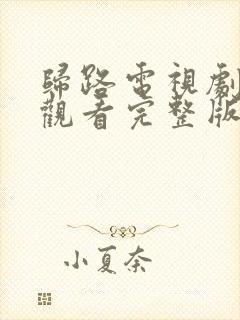 歸路電視劇
觀看完整版
小夏奈